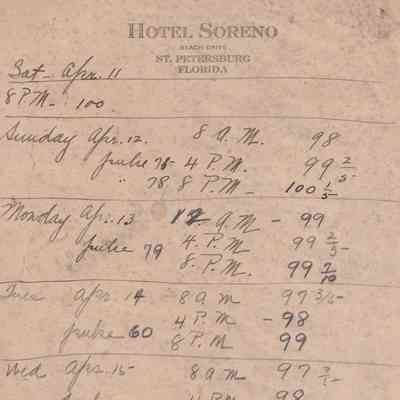 HOTEL SORENO
BEACH DRIVE
ST. PETERSBURG
FLORIDA
Sat - Apr. 11
8 P.M - 100
Sunday Apr. 12. 8 A.M. 98
pulse 75 - 4 P.M. 99 2/5
" 78 8 P.M - 100 1/5
Monday Apr. 13 12. A.M - 99
pulse 79 4. P.M 99 2/5
8. P.M. 99 2/10
Tues Apr. 14 - 8 a m 97 3/5
4 P.M - 98
pulse 60 8 P.M 99
Wed Apr. 15 8 a m 97
4 P.M 98